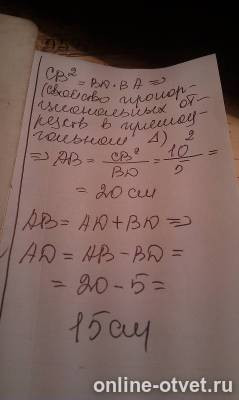 CB² = BD · BA ⇒
(свойство пропор-
циональных от-
резств в прямоу-
гольном Δ)
⇒ AB = CB²/BD = 10²/5 =
= 20 см
AB = AD + BD ⇒
AD = AB - BD =
= 20 - 5 =
15 см
online-otvet.ru